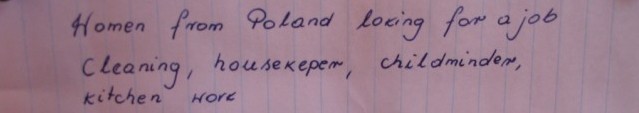 Women from Poland loking for a job
Cleaning, housekeper, childminder,
kitchen work